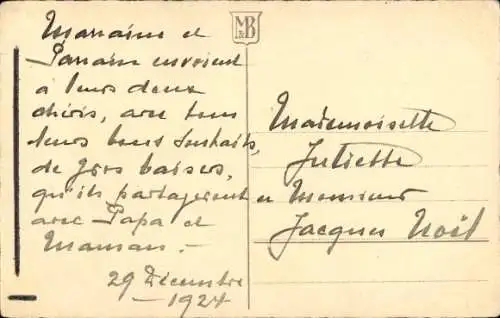 Marraine et
Parrain envoient
à leurs deux
chéris, avec tous
leurs bons souhaits,
de gros baisers,
qu'ils partageront
avec Papa et
Maman. -
29 Décembre
- 1924
M&B
Mademoiselle
Juliette
et Monsieur
Jacques Noël